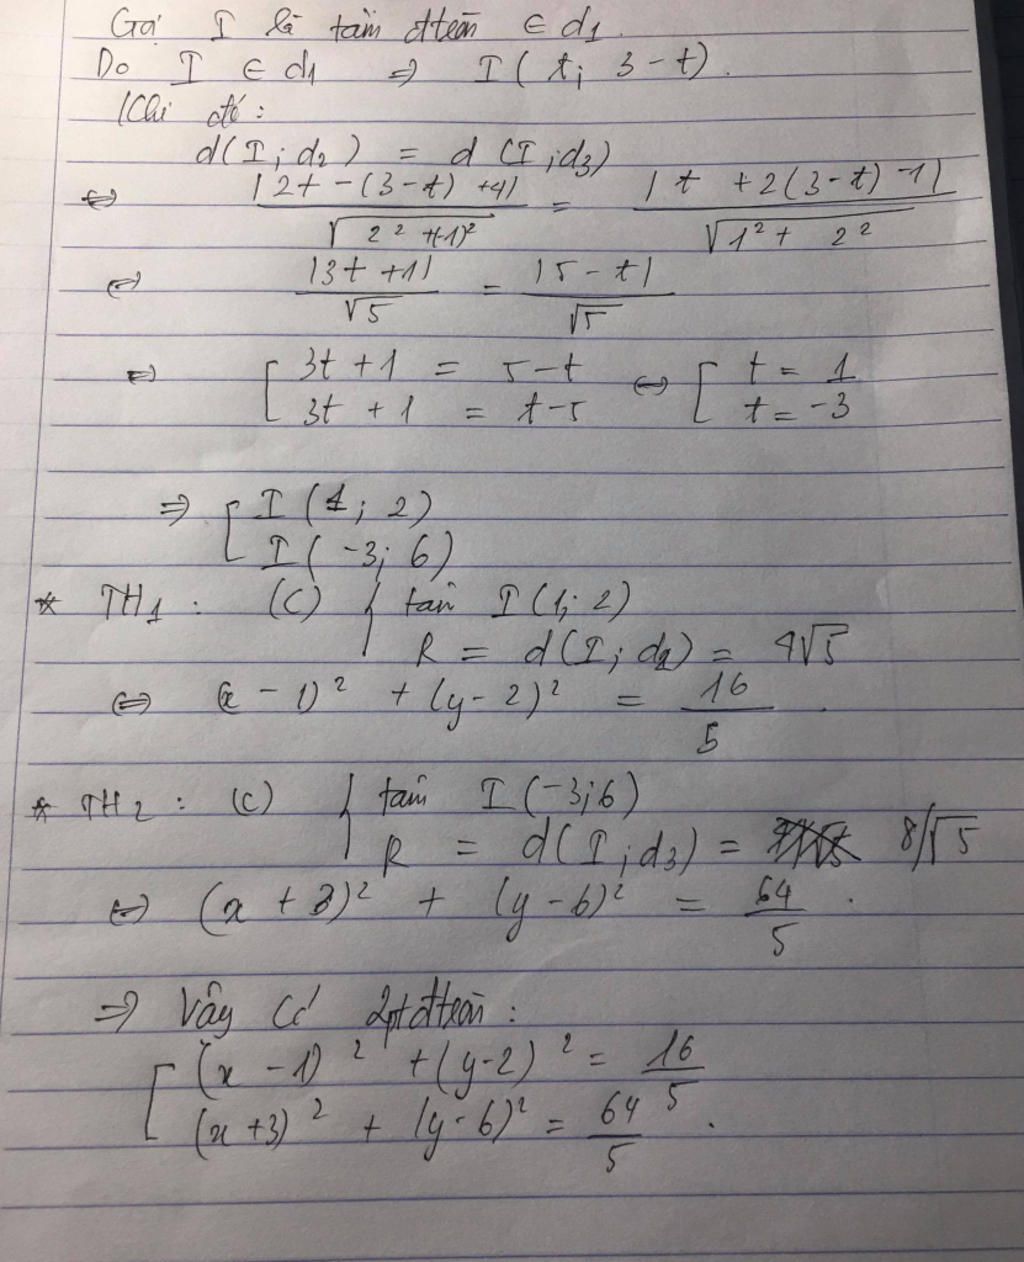 Gọi I là tâm đtròn ∈ d₁.
Do I ∈ d₁ ⇒ I ( t; 3 - t).
Khi đó:
d(I; d₂) = d (I; d₃)
⇔ |2t - (3 - t) + 4| / √(2² + (-1)²) = |t + 2(3 - t) - 1| / √(1² + 2²)
⇔ |3t + 1| / √5 = |5 - t| / √5
⇔ [ 3t + 1 = 5 - t ⇔ [ t = 1
3t + 1 = t - 5 t = -3
⇒ [ I (1; 2)
I (-3; 6)
* TH₁: (C) { tâm I (1; 2)
R = d(I; d₂) = 4√5
⇔ (x - 1)² + (y - 2)² = 16/5.
* TH₂: (C) { tâm I (-3; 6)
R = d(I; d₃) = 8/√5
⇔ (x + 3)² + (y - 6)² = 64/5.
⇒ Vậy có 2 pt đtròn:
[ (x - 1)² + (y - 2)² = 16/5
(x + 3)² + (y - 6)² = 64/5.